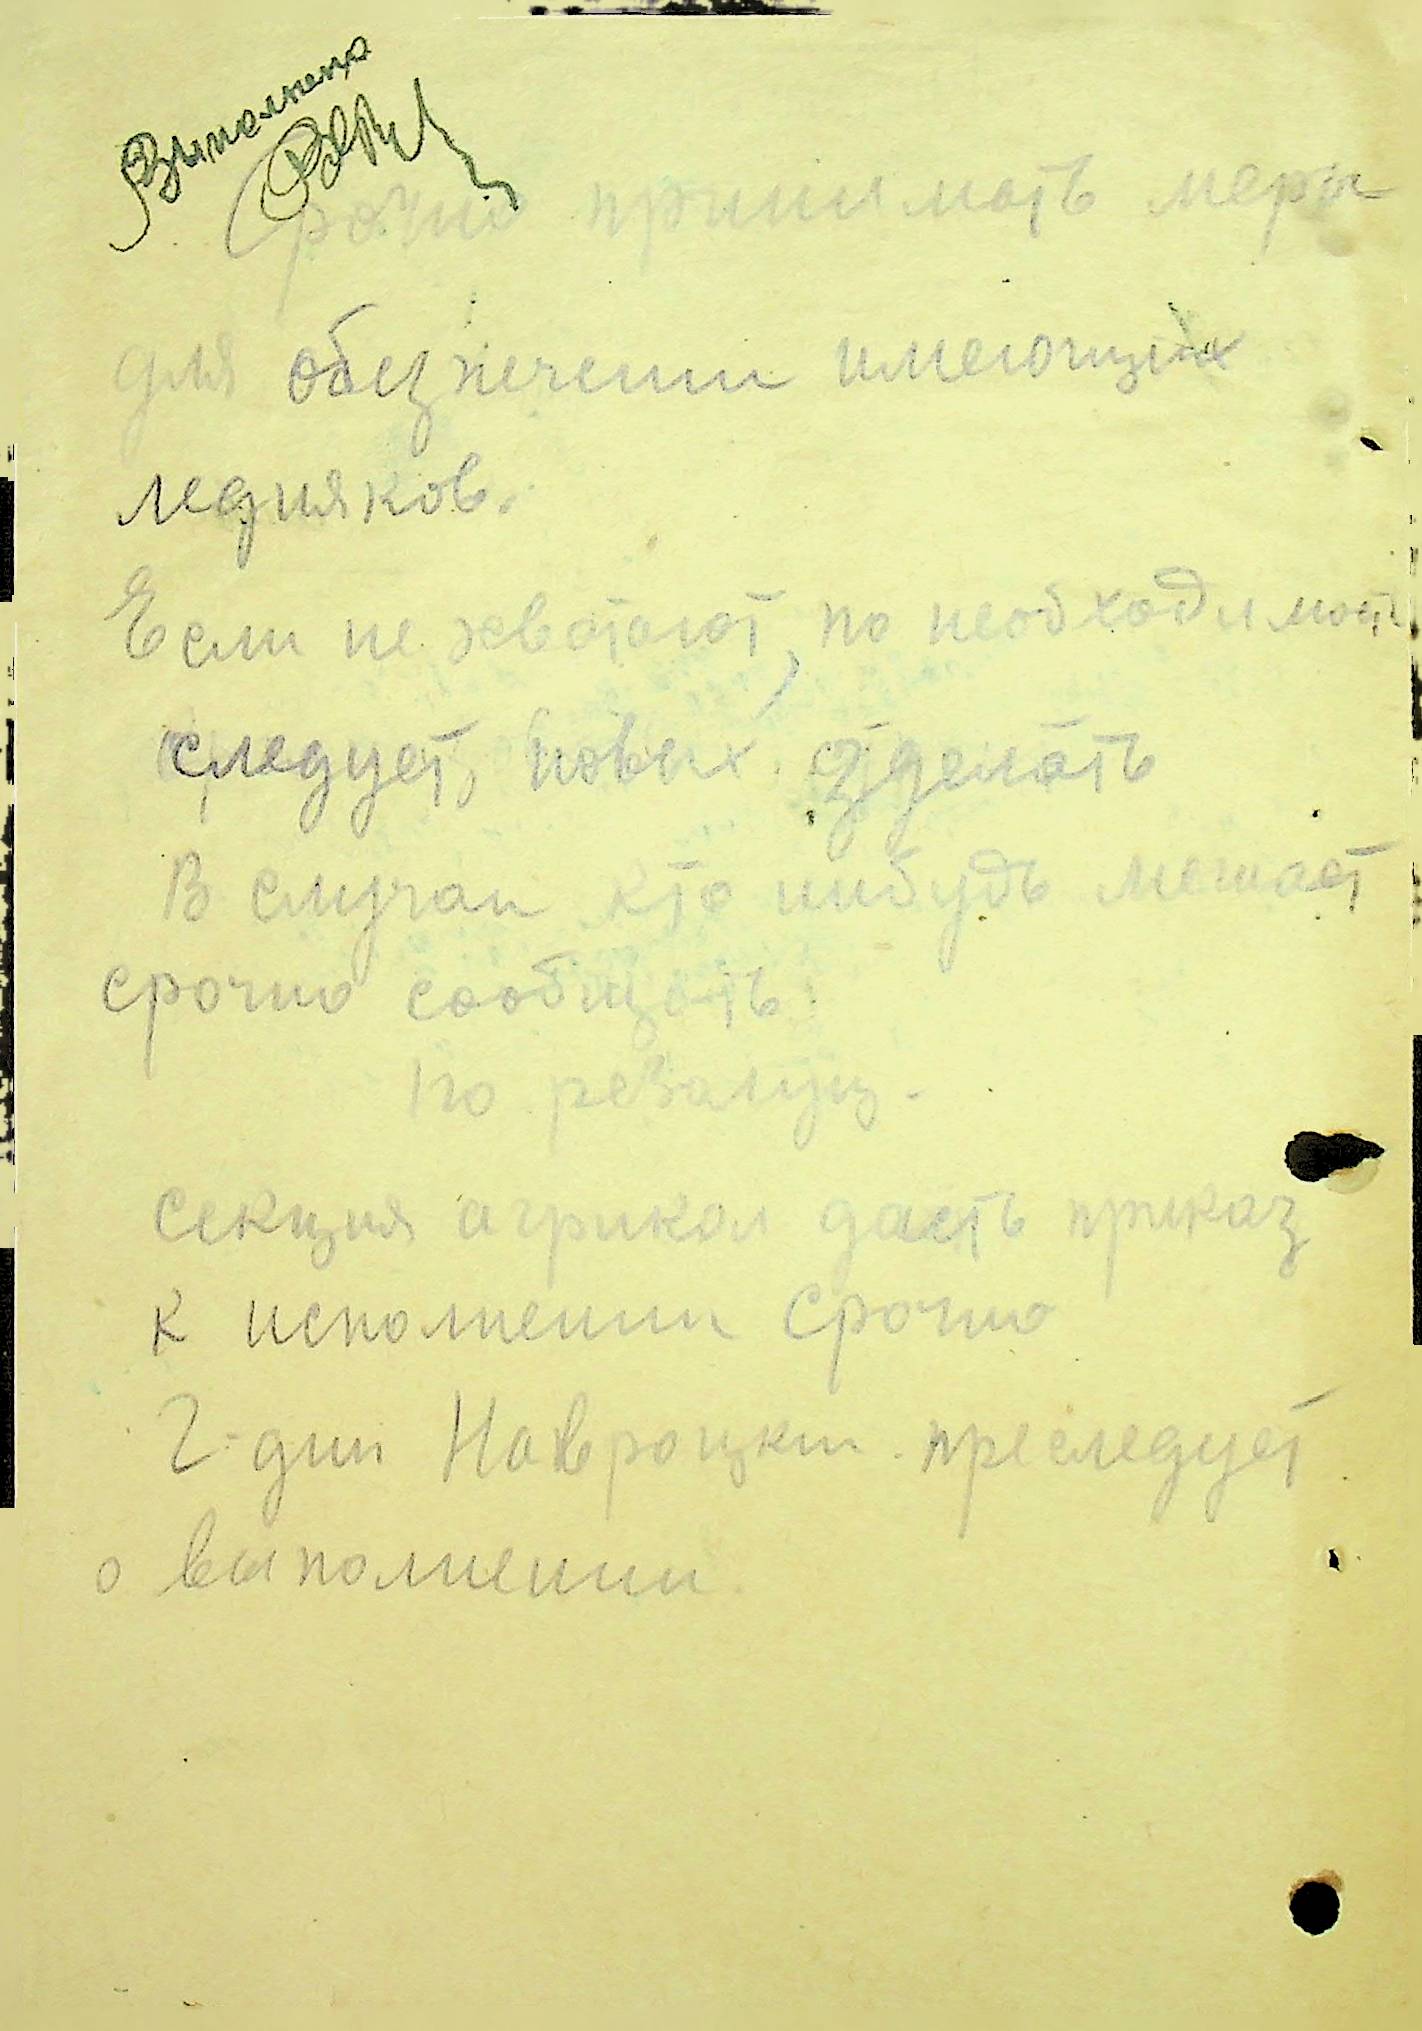 Выполнено
Срочно принимать меры
для обезпечении имеющих
ледняков.
Если не хватают, по необходимост
следует, новых зделать
В случаи кто нибудь мешает
срочно сообщать
по резалуц.
Секция агрикол дасть приказ
к исполнении срочно
Г-дин Навроцкии преследует
о выполнении